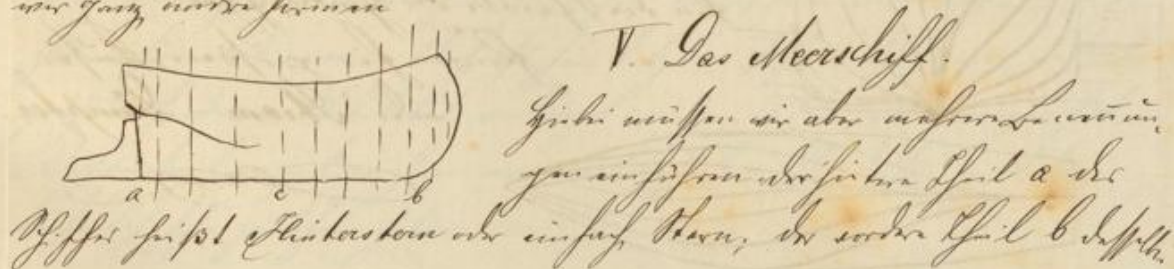 wir ganz andre Formen
V. Das Meerschiff.
Hiebei müssen wir aber mehrere Benennun-
gen einführen der hintere Theil a des
a c b
Schiffes heißt Hinterstern oder einfach Stern; der vordere Theil b desselb.